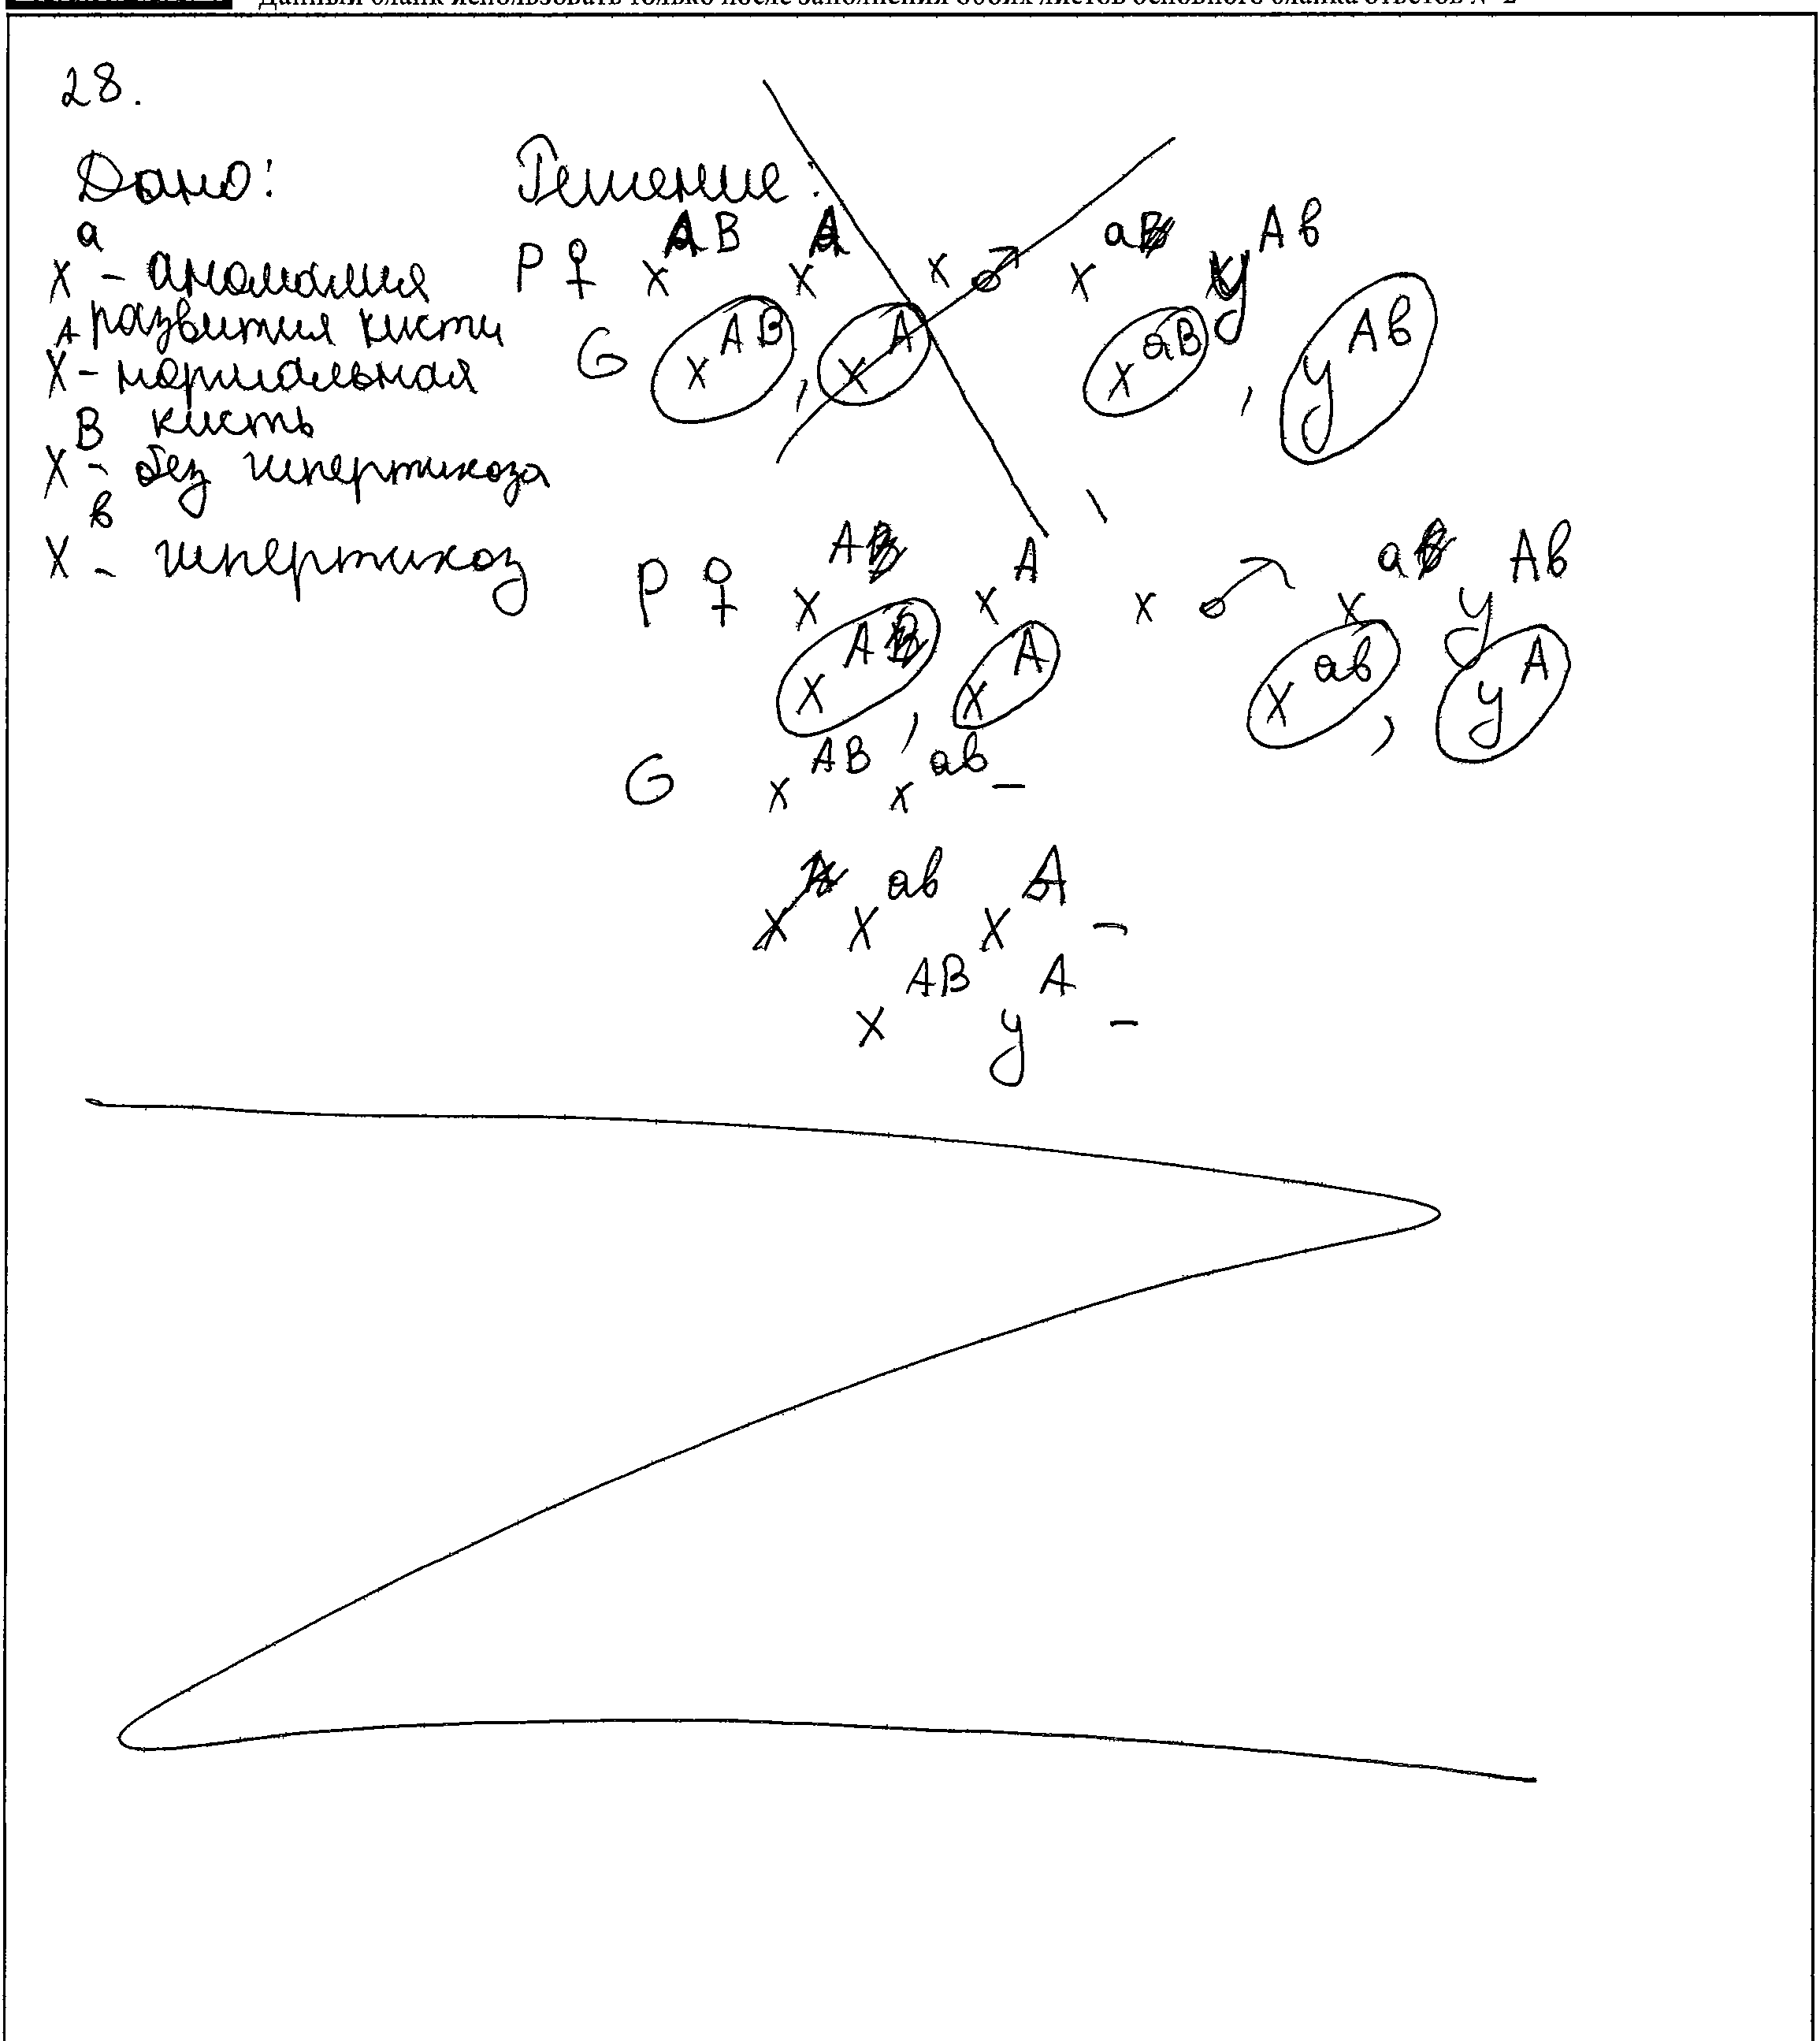 Данный бланк использовать только после заполнения обоих листов основного бланка ответов № 2
28.
Дано: Решение:
X^a - аномалия
развития кисти
X^A - нормальная
кисть
X^B - без гипертихоза
X^в - гипертихоз
P ♀ X^AB X^A x ♂ X^aB Y^Aв
G X^AB , X^A X^aB , Y^Aв
P ♀ X^AB X^A x ♂ X^aв Y^Aв
X^AB , X^A X^aв , Y^A
G X^AB X^aв -
X^aв X^A -
X^AB Y^A -